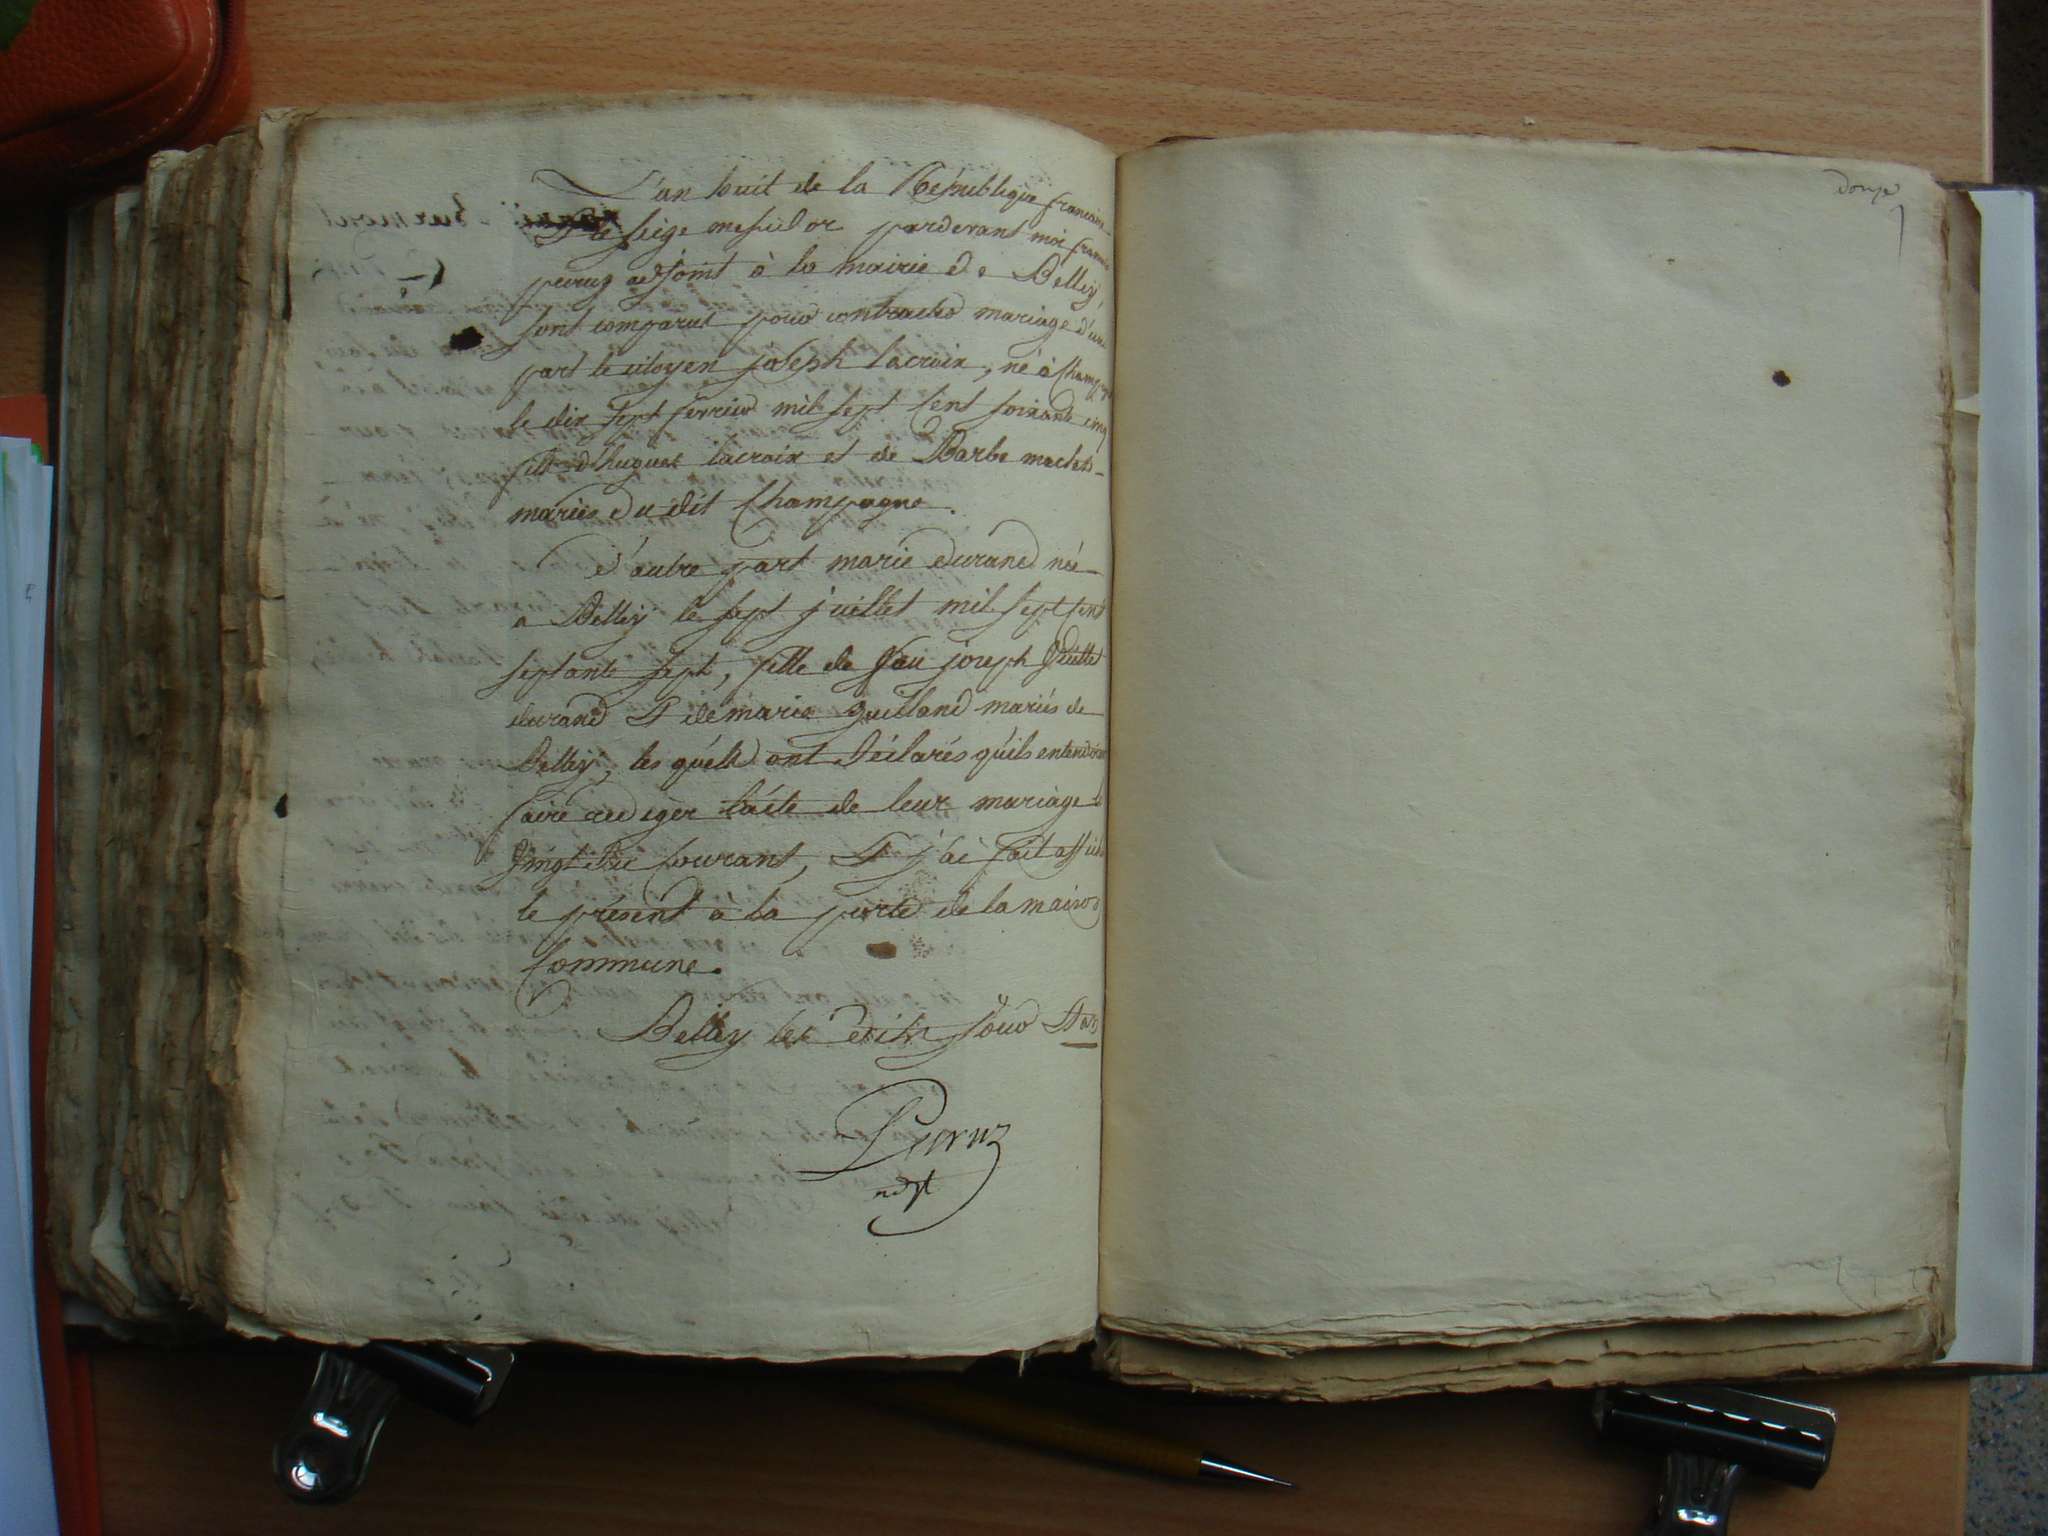 L'an huit de la République francaise
& le seize messidor pardevant moi francois
peruz adjoint à la mairie de Belley,
sont comparus pour contracter mariage d'une
part le citoyen joseph lacroix, né à Champagne
le dix sept fevrier mil sept cent soixante cinq
fils d'hugues lacroix et de Barbe
mariés du dit Champagne.
d'autre part marie durand née
a Belley le sept juillet mil sept cent
septante sept, fille de feu joseph
durand & de marie guilland mariés de
Belley, les quels ont déclarés qu'ils entendoient
faire rediger l'acte de leur mariage le
vingt du courant, & j'ai fait afficher
le présent à la porte de la maison
Commune.
Belley les dits jour & an
Peruz
adjt
douze